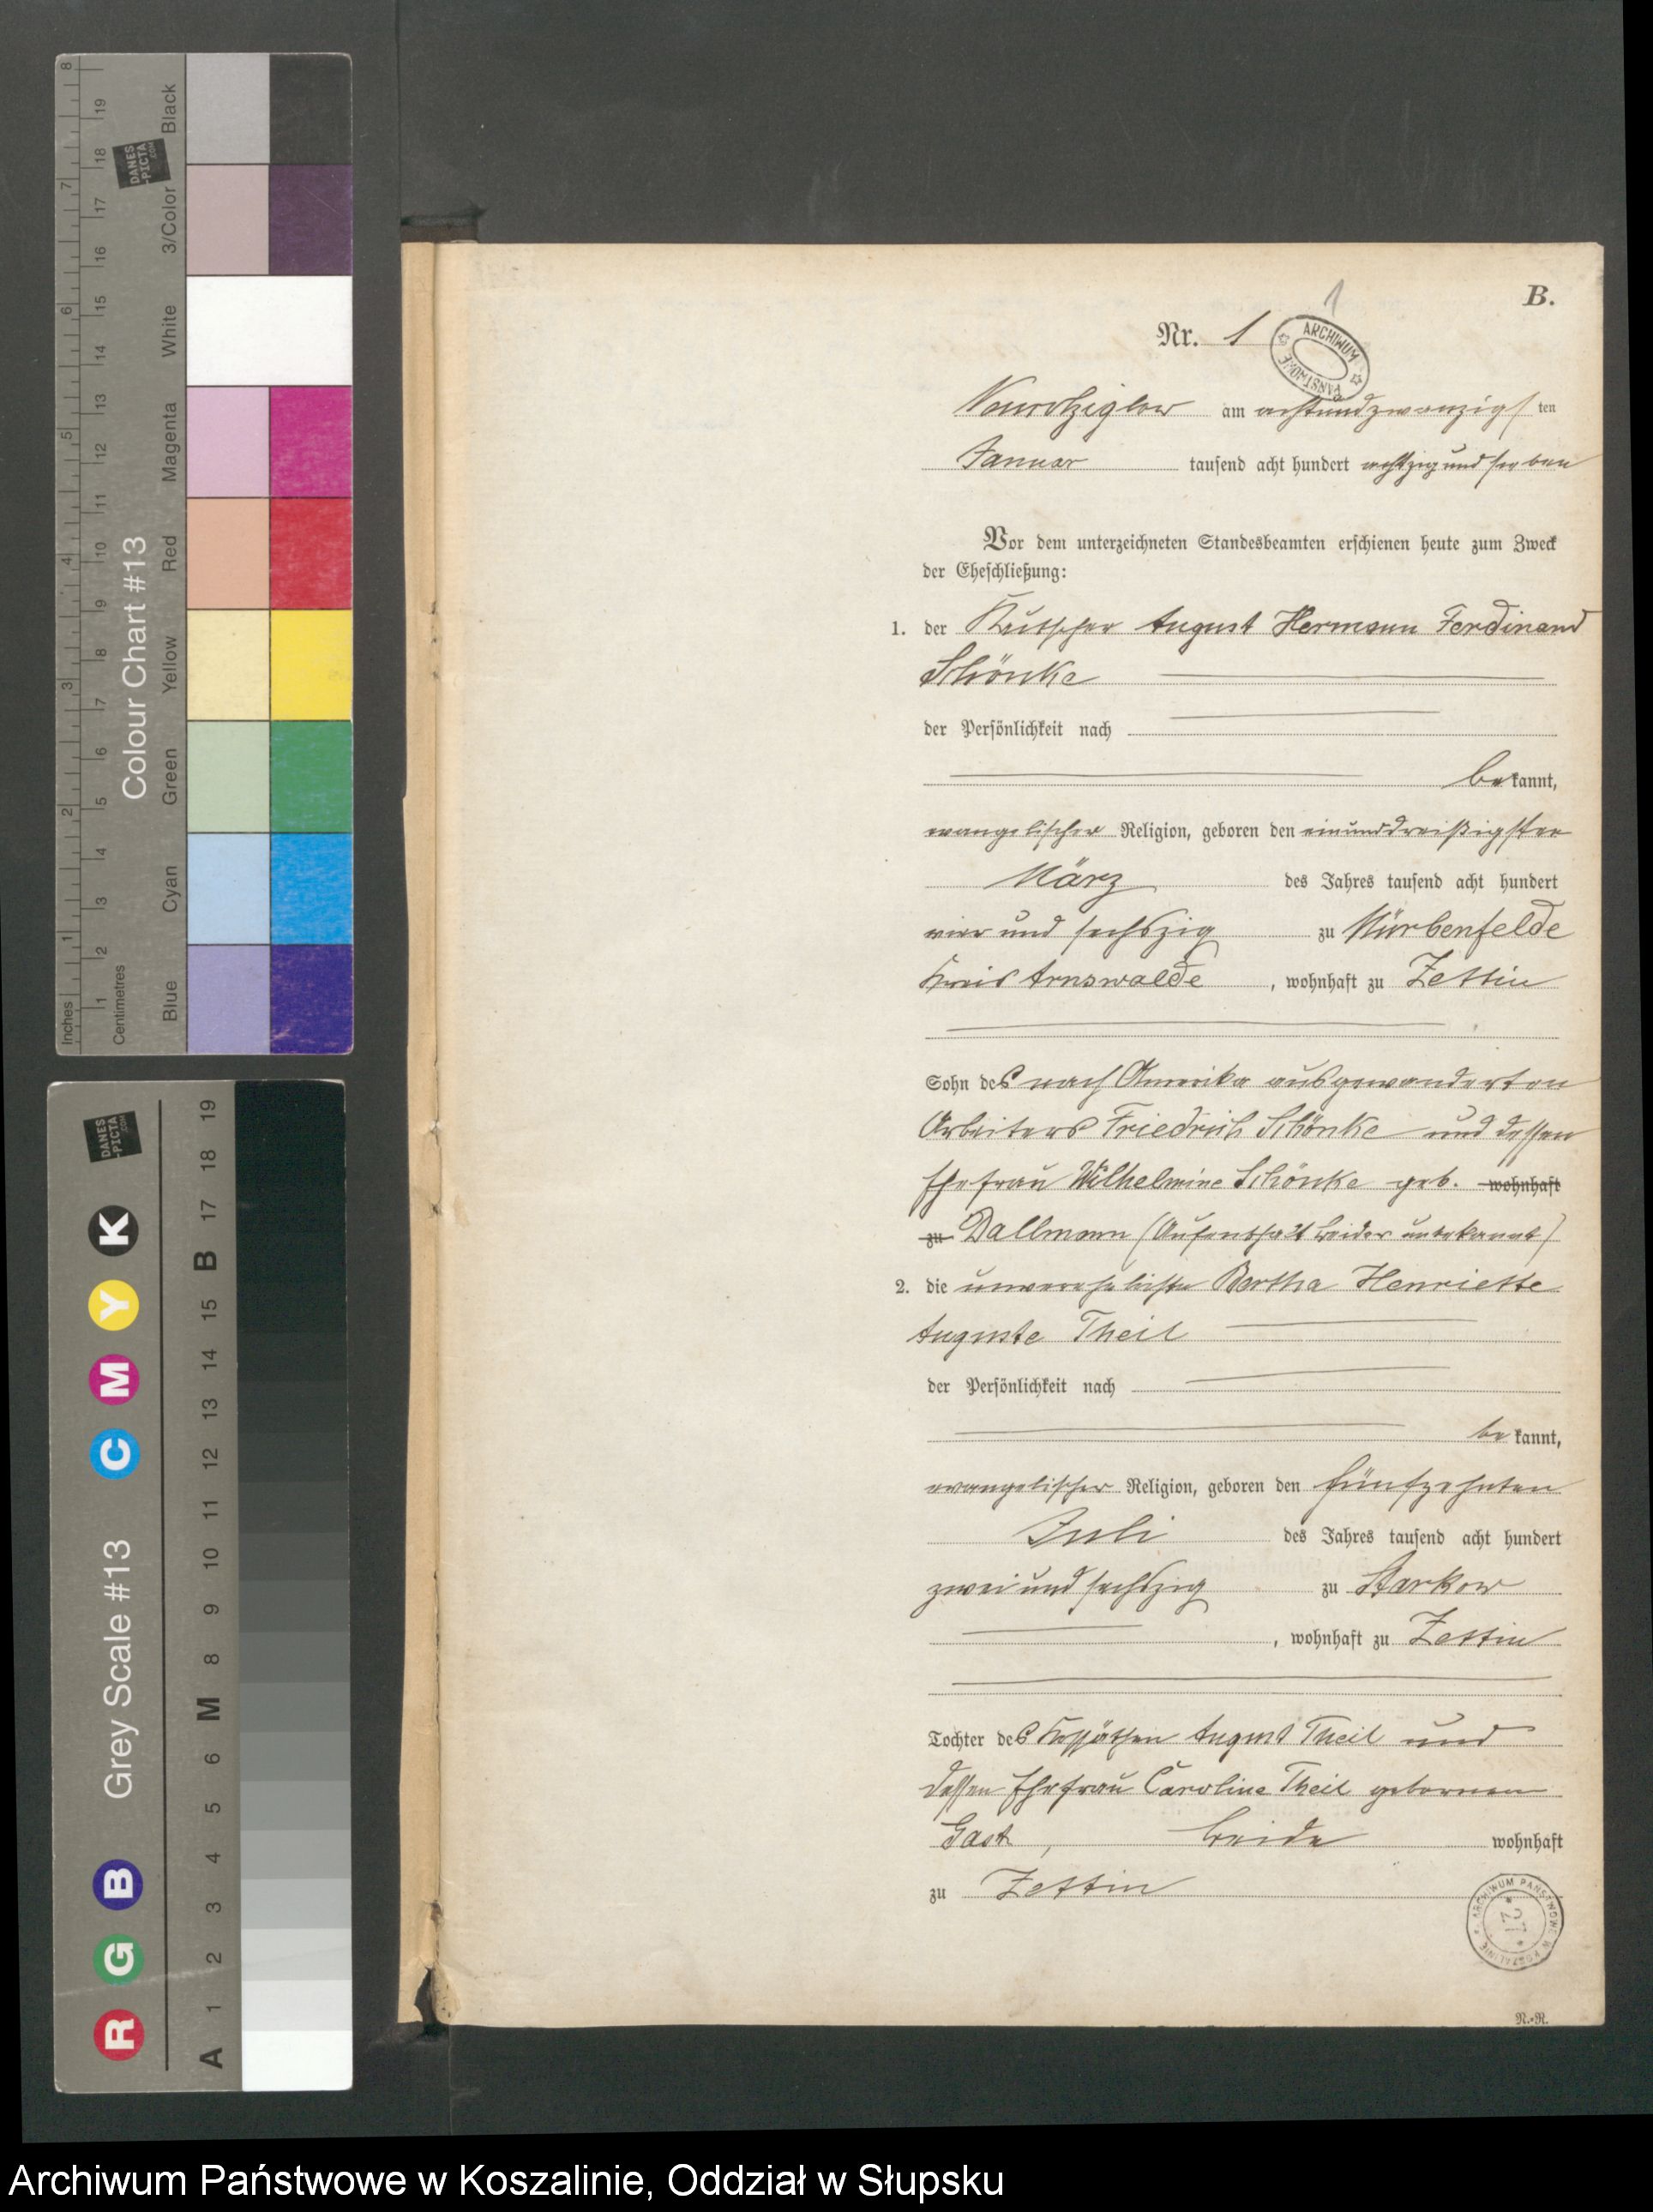 B.
1
Nr. 1
ARCHIWUM PAŃSTWOWE
am achtundzwanzigsten
Januar tausend acht hundert achtzig und sieben
Vor dem unterzeichneten Standesbeamten erschienen heute zum Zweck
der Eheschließung:
1. der Kutscher August Hermann Ferdinand
Schönke
der Persönlichkeit nach
bekannt,
evangelischer Religion, geboren den einunddreißigsten
März des Jahres tausend acht hundert
vier und sechszig zu Mürbenfelde
Kreis Arnswalde, wohnhaft zu Zettin
Sohn des nach Amerika ausgewanderten
Arbeiters Friedrich Schönke und dessen
Ehefrau Wilhelmine Schönke geb. wohnhaft
zu Dallmann (Aufenthalt beider unbekannt)
2. die unverehelichte Bertha Henriette
Auguste Theil
der Persönlichkeit nach
bekannt,
evangelischer Religion, geboren den fünfzehnten
Juli des Jahres tausend acht hundert
zwei und sechszig zu Starkow
, wohnhaft zu Zettin
Tochter des Kossäthen August Theil und
dessen Ehefrau Caroline Theil gebornen
Gast, beide wohnhaft
zu Zettin
ARCHIWUM PAŃSTWOWE W KOSZALINIE
27
R.-R.
Inches 1 2 3 4 5 6 7 8
Centimetres 1 2 3 4 5 6 7 8 9 10 11 12 13 14 15 16 17 18 19
Colour Chart #13
DANES-PICTA.COM
Blue Cyan Green Yellow Red Magenta White 3/Color Black
Grey Scale #13
DANES-PICTA.COM
R G B C M Y K
A 1 2 3 4 5 6 M 8 9 10 11 12 13 14 15 B 17 18 19
Archiwum Państwowe w Koszalinie, Oddział w Słupsku